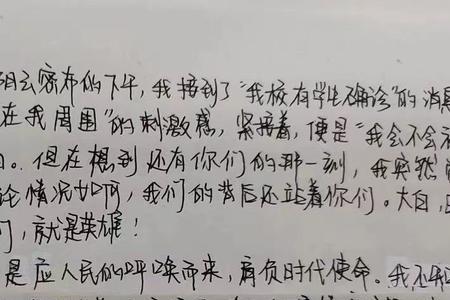 阴云密布的下午，我接到了“我校有学生确诊”的消息
在我周围”的刺激感，紧接着，便是“我会不会
。但在想到还有你们的那一刻，我突然
论情况如何，我们的背后还站着你们。大白，
们，就是英雄！
是应人民的呼唤而来，肩负时代使命。我还